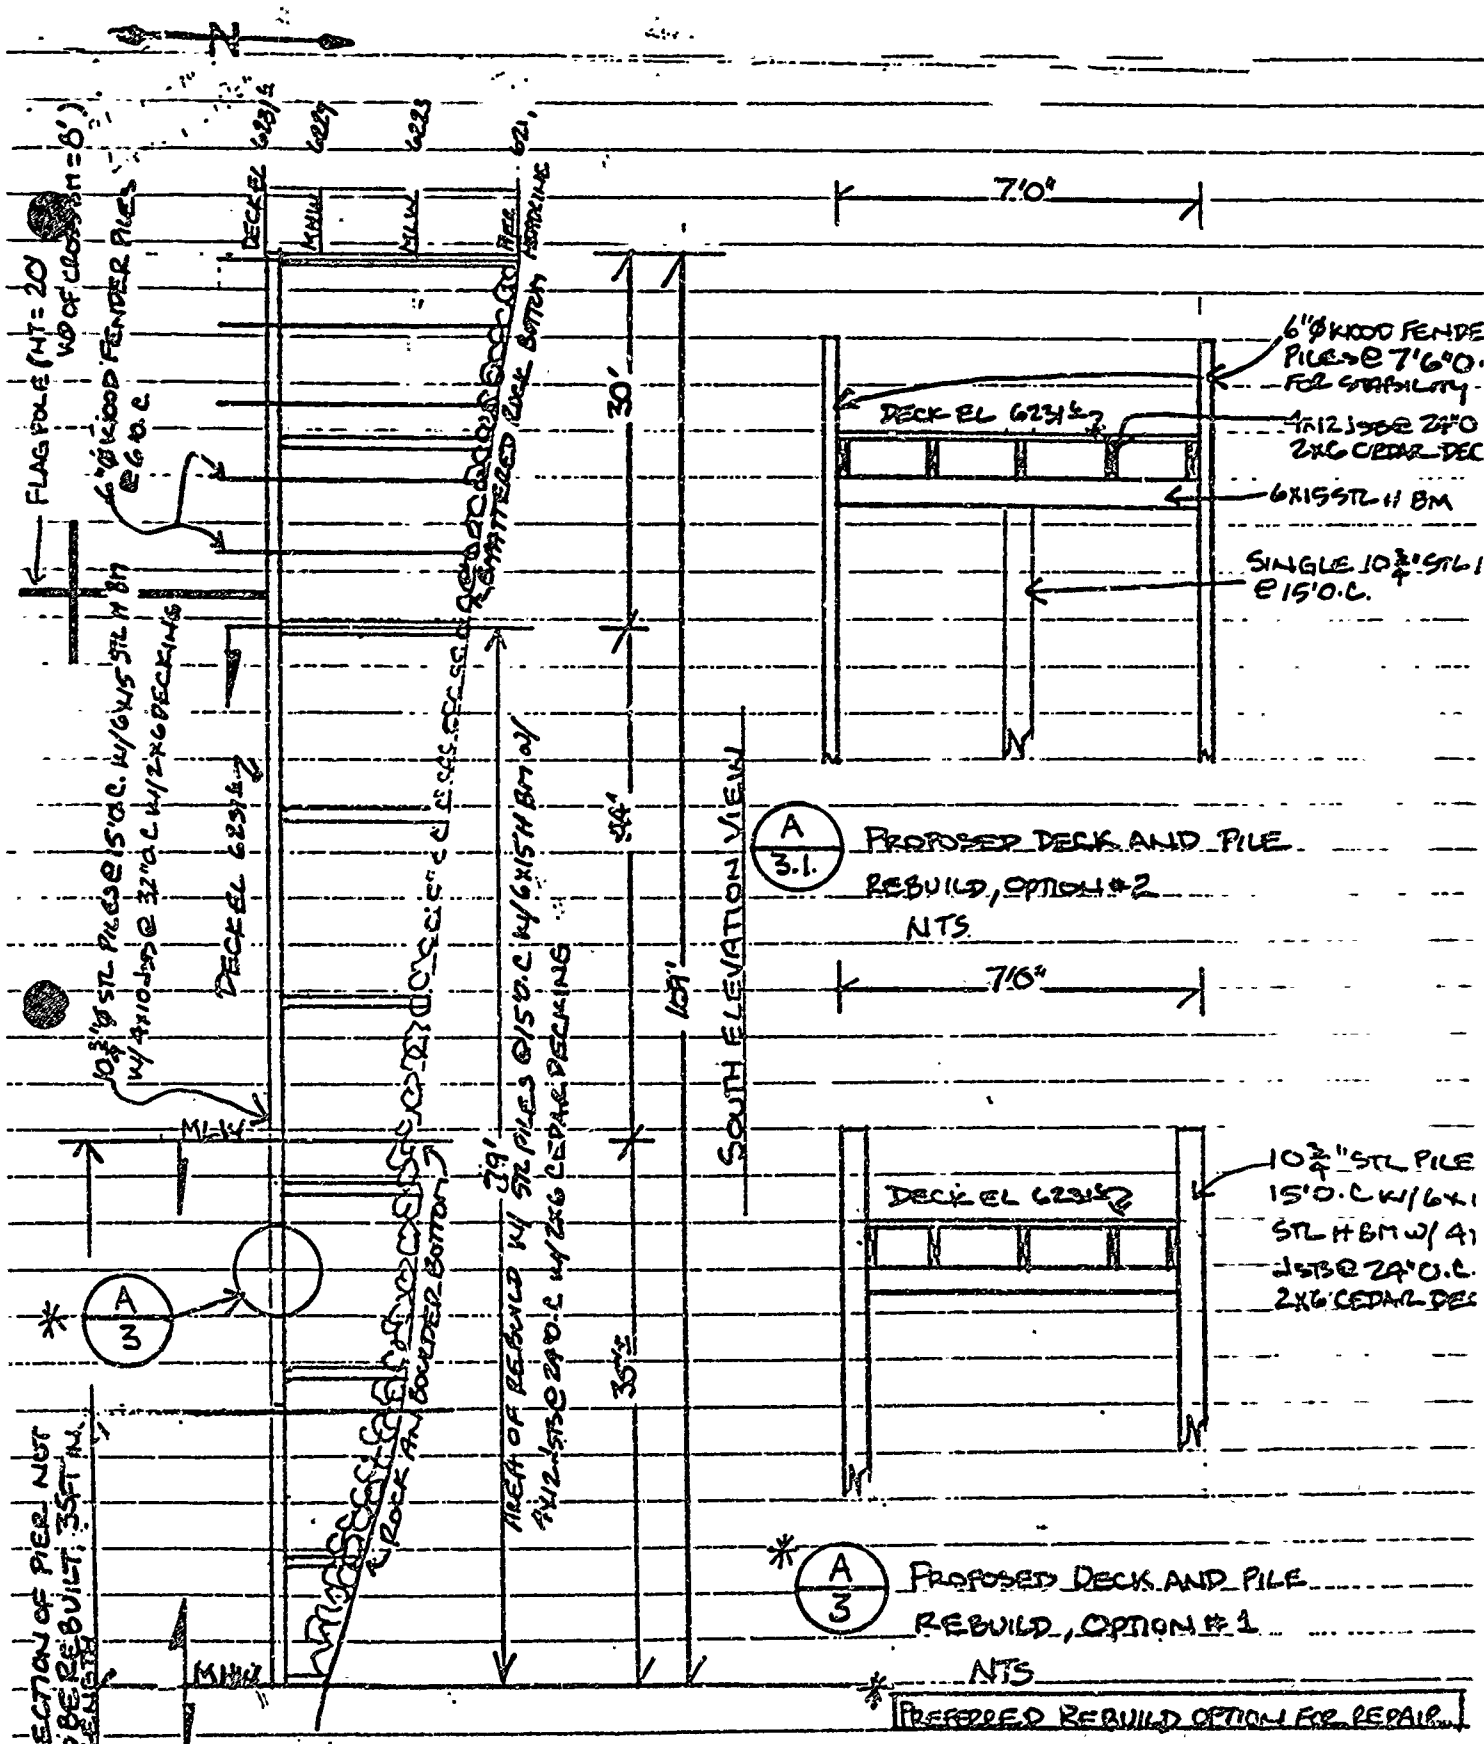 N
FLAGPOLE (HT = 20'
WD OF CROSSBM = 8')
6"Ø WOOD FENDER PILES
@ 6' O.C.
DECK EL 6231½
MHW 6229
MLW 6223
PIER
621
30'
SCATTERED ROCK BOTTOM
10¾"Ø STL PILES @ 15' O.C. W/ 6X15 STL H BM
W/ 4X10 JSTS @ 32" O.C. W/ 2X6 DECKING
DECK EL 6231½
44'
109'
SOUTH ELEVATION VIEW
AREA OF REBUILD W/ STL PILES @ 15' O.C. W/ 6X15 H BM W/
4X12 JSTS @ 24" O.C. W/ 2X6 CEDAR DECKING
79'
MLW
* A
3
ROCK AND BOULDER BOTTOM
ECTION OF PIER NOT
BE REBUILT, 35 FT IN
LENGTH
MHW
7'0"
6"Ø WOOD FENDE
PILES @ 7'6" O.
FOR STABILITY
DECK EL 6231½
4X12 JSTS @ 24" O
2X6 CEDAR DEC
6X15 STL H BM
SINGLE 10¾" STL
@ 15' O.C.
A
3.1.
PROPOSED DECK AND PILE
REBUILD, OPTION #2
NTS
7'0"
DECK EL 6231½
10¾" STL PILE
15' O.C W/ 6X1
STL H BM W/ 4
JSTS @ 24" O.C.
2X6 CEDAR DEC
* A
3
PROPOSED DECK AND PILE
REBUILD, OPTION #1
NTS
* PREFERRED REBUILD OPTION FOR REPAIR